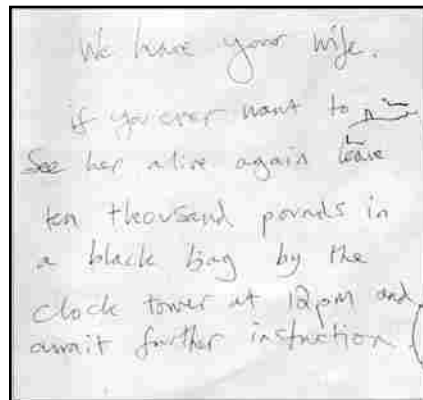 We have your wife.
if you ever want to
See her alive again leave
ten thousand pounds in
a black bag by the
clock tower at 12pm and
await further instruction